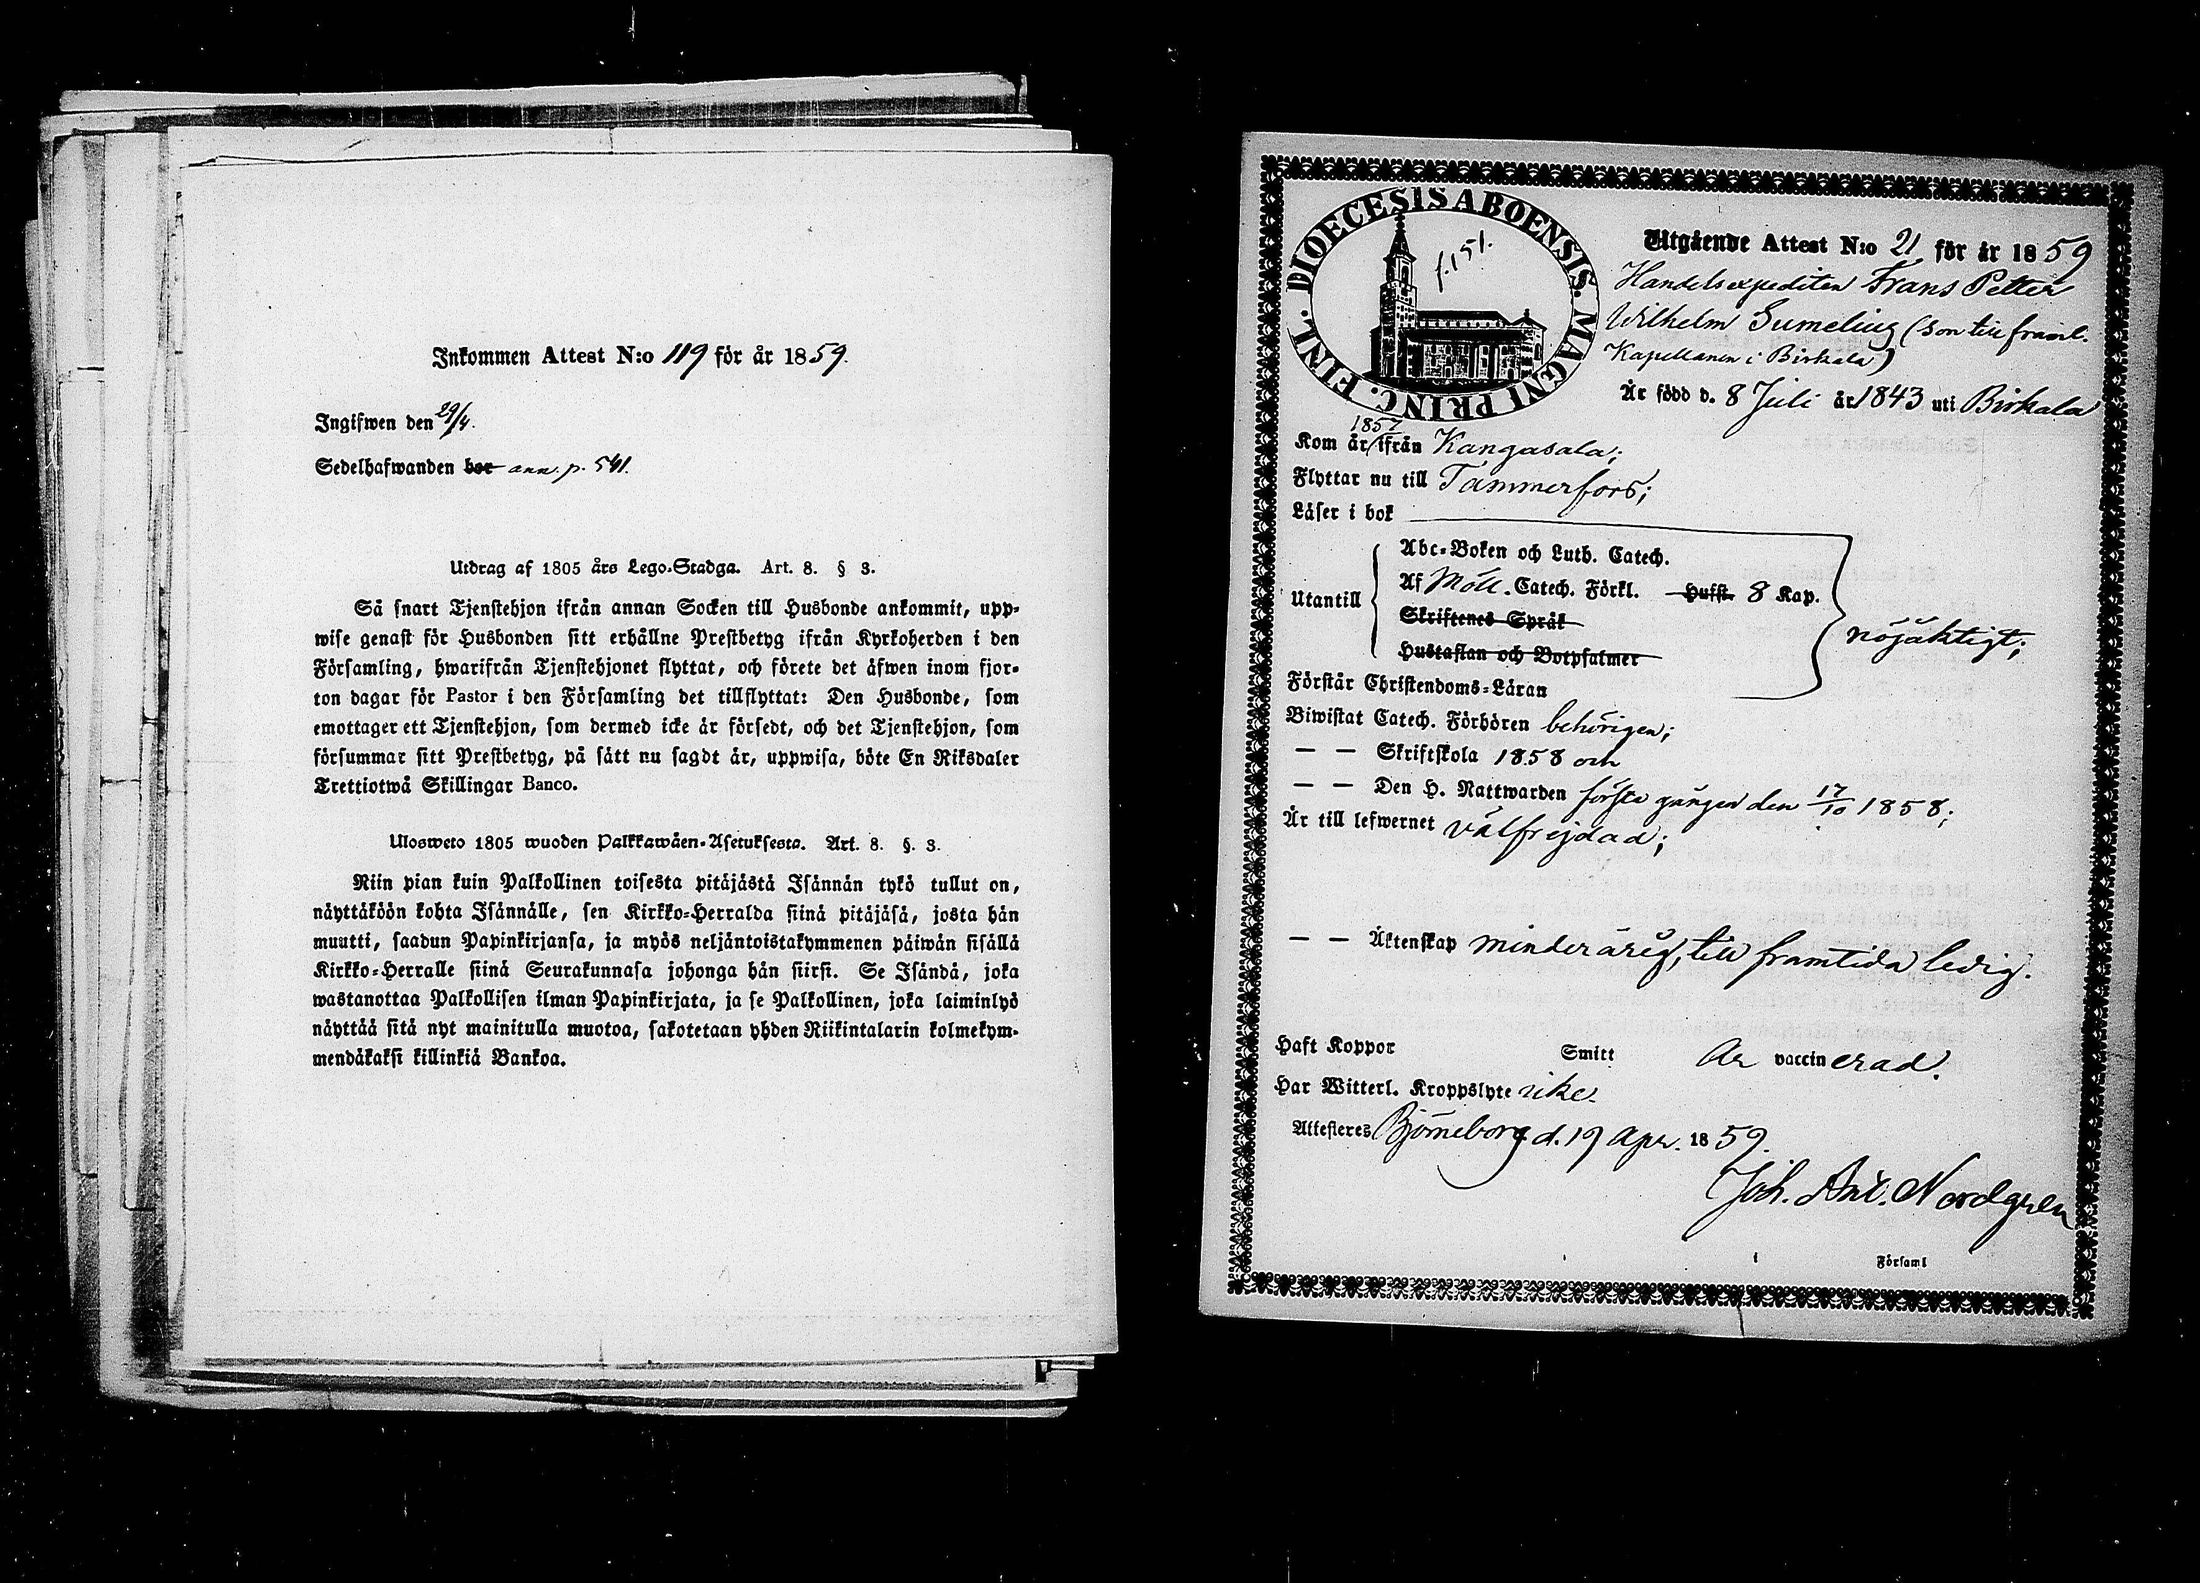 Inkommen Attest N:o 119 för år 1859.
Ingifwen den 29/4.
Sedelhafwanden bor ann. p. 541.
Utdrag af 1805 års Lego-Stadga. Art. 8. § 3.
Så snart Tjenstehjon ifrån annan Socken till Husbonde ankommit, upp-
wise genast för Husbonden sitt erhållne Prestbetyg ifrån Kyrkoherden i den
Församling, hwarifrån Tjenstehjonet flyttat, och förete det äfwen inom fjor-
ton dagar för Pastor i den Församling det tillflyttat: Den Husbonde, som
emottager ett Tjenstehjon, som dermed icke är försedt, och det Tjenstehjon, som
försummar sitt Prestbetyg, på sätt nu sagdt är, uppwisa, böte En Riksdaler
Trettiotwå Skillingar Banco.
Ulosweto 1805 wuoden Palkkawäen-Asetuksesta. Art. 8. §. 3.
Niin pian kuin Palkollinen toisesta pitäjästä Isännän tykö tullut on,
näyttäköön kohta Isännälle, sen Kirkko-Herralda siinä pitäjäsä, josta hän
muutti, saadun Papinkirjansa, ja myös neljäntoistakymmenen päiwän sisällä
Kirkko-Herralle siinä Seurakunnasa johonga hän siirsi. Se Isändä, joka
wastanottaa Palkollisen ilman Papinkirjata, ja se Palkollinen, joka laiminlyö
näyttää sitä nyt mainitulla muotoa, sakotetaan yhden Riikintalarin kolmekym-
mendäkaksi killinkiä Bankoa.
DIOECESIS ABOENSIS. MAGNI PRINC. FINL.
f. 151.
Utgående Attest N:o 21 för år 1859
Handelsexpediten Frans Petter
Wilhelm Sumelius (son till framl.
Kapellanen i Birkala)
Är född d. 8 Juli år 1843 uti Birkala
1857
Kom år ifrån Kangasala;
Flyttar nu till Tammerfors;
Läser i bok
Abc-Boken och Luth. Catech.
Utantill Af Möll. Catech. Förkl. Hufst. 8 Kap.
Skriftenes Språk
Hustaflan och Botpsalmer
nöjaktigt;
Förstår Christendoms-Läran
Biwistat Catech. Förhören behörigen;
— — Skriftskola 1858 och
— — Den H. Nattwarden första gången den 17/10 1858;
Är till lefwernet välfrejdad;
— — Äktenskap minderårig, till framtida ledig.
Haft Koppor Smitt Är vaccinerad.
Har Witterl. Kroppslyte icke.
Attesteres Björneborg d. 19 Apr. 1859.
Joh. Ant. Nordgren
Församl